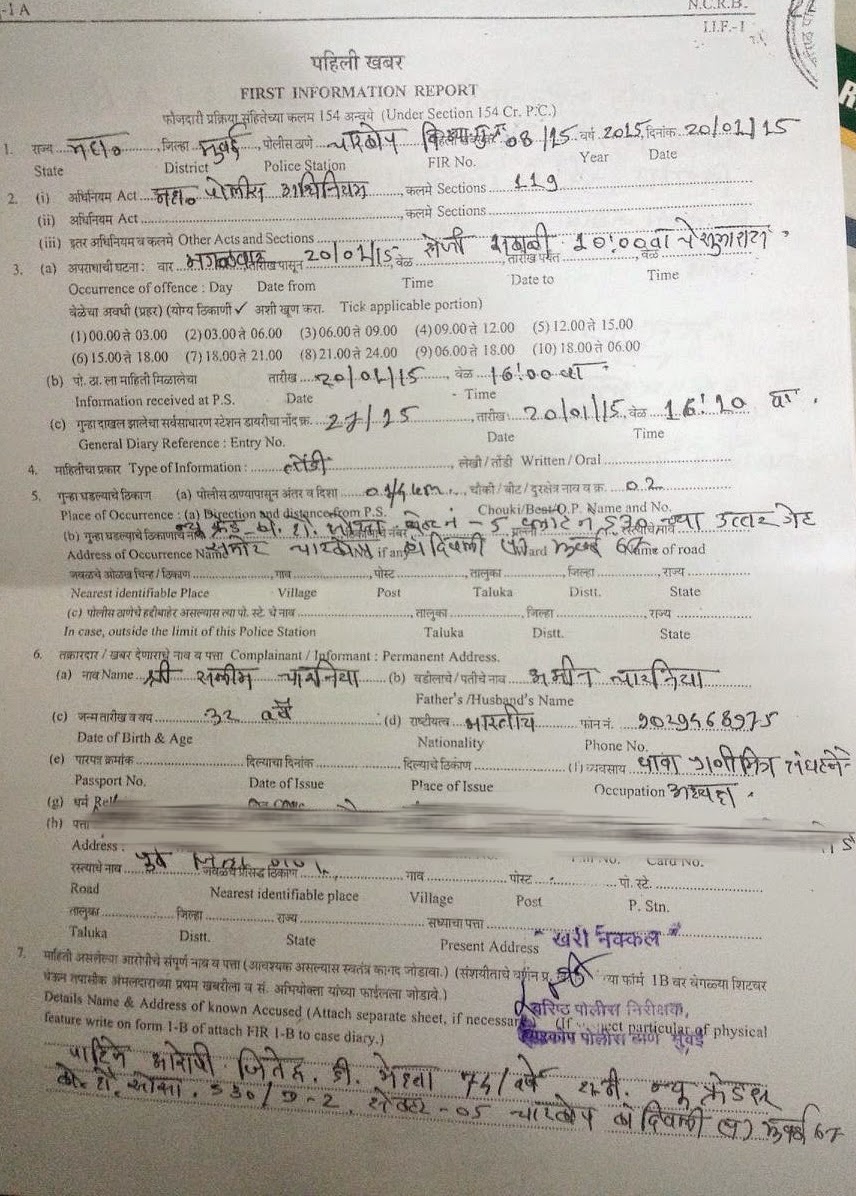 -1 A
N.C.R.B.
I.I.F.-I
पहिली खबर
FIRST INFORMATION REPORT
फौजदारी प्रक्रिया संहितेच्या कलम 154 अन्वये (Under Section 154 Cr. P.C.)
1. राज्य महा० जिल्हा मुंबई पोलीस ठाणे चारकोप 08/15 वर्ष 2015 दिनांक 20/01/15
State District Police Station FIR No. Year Date
2. (i) अधिनियम Act महा. पोलीस अधिनियम, कलमे Sections 119
(ii) अधिनियम Act, कलमे Sections
(iii) इतर अधिनियम व कलमे Other Acts and Sections
3. (a) अपराधाची घटना : वार मंगळवार तारीख पासून 20/01/15, वेळ रोजी सकाळी 10:00 वा चे सुमारास, तारीख पर्यंत, वेळ
Occurrence of offence : Day Date from Time Date to Time
वेळेचा अवधी (प्रहर) (योग्य ठिकाणी ✓ अशी खूण करा. Tick applicable portion)
(1) 00.00 ते 03.00 (2) 03.00 ते 06.00 (3) 06.00 ते 09.00 (4) 09.00 ते 12.00 (5) 12.00 ते 15.00
(6) 15.00 ते 18.00 (7) 18.00 ते 21.00 (8) 21.00 ते 24.00 (9) 06.00 ते 18.00 (10) 18.00 ते 06.00
(b) पो. ठा. ला माहिती मिळालेचा तारीख 20/01/15, वेळ 16:00 वा
Information received at P.S. Date Time
(c) गुन्हा दाखल झालेचा सर्वसाधारण स्टेशन डायरीचा नोंद क्र. 27/15, तारीख : 20/01/15, वेळ 16:10 वा.
General Diary Reference : Entry No. Date Time
4. माहितीचा प्रकार Type of Information : तोंडी, लेखी / तोंडी Written / Oral
5. गुन्हा घडल्याचे ठिकाण (a) पोलीस ठाण्यापासून अंतर व दिशा 01/4 km, चौकी / बीट / दुरक्षेत्र नाव व क्र. 02
Place of Occurrence : (a) Direction and distance from P.S. Chouki/Beat/O.P. Name and No.
(b) गुन्हा घडल्याचे ठिकाणाचे को. सो. सेक्टर नं - 5 प्लॉट नं 530 च्या उत्तर गेट
Address of Occurrence Name समोर चारकोप if any कांदिवली Ward मुंबई 67 Name of road
जवळचे ओळख चिन्ह / ठिकाण, गाव, पोस्ट, तालुका, जिल्हा, राज्य
Nearest identifiable Place Village Post Taluka Distt. State
(c) पोलीस ठाणेचे हद्दीबाहेर असल्यास त्या पो. स्टे. चे नाव, तालुका, जिल्हा, राज्य
In case, outside the limit of this Police Station Taluka Distt. State
6. तक्रारदार / खबर देणाराचे नाव व पत्ता Complainant / Informant : Permanent Address.
(a) नाव Name श्री सलीम चारनिया (b) वडीलाचे / पतीचे नाव अमीन चारनिया
Father's /Husband's Name
(c) जन्म तारीख व वय 32 वर्षे (d) राष्ट्रीयत्व भारतीय फोन नं. 9029568975
Date of Birth & Age Nationality Phone No.
(e) पारपत्र क्रमांक दिल्याचा दिनांक दिल्याचे ठिकाण (f) व्यवसाय
Passport No. Date of Issue Place of Issue Occupation अध्यक्ष.
(g) धर्म
(h) पत्ता
Address : Card No.
रस्त्याचे नाव जवळचे प्रसिद्ध ठिकाण गाव पोस्ट पो. स्टे.
Road Nearest identifiable place Village Post P. Stn.
तालुका जिल्हा राज्य सध्याचा पत्ता
Taluka Distt. State Present Address
"खरी नक्कल"
7. माहिती असलेल्या आरोपीचे संपूर्ण नाव व पत्ता (आवश्यक असल्यास स्वतंत्र कागद जोडावा.) (संशयीताचे वर्णन प्र. या फॉर्म 1B वर वेगळ्या शिटवर
घेऊन तपासीक अंमलदाराच्या प्रथम खबरीला व सं. अभियोक्ता यांच्या फाईलला जोडावे.)
Details Name & Address of known Accused (Attach separate sheet, if necessary) (If particular of physical
feature write on form 1-B of attach FIR 1-B to case diary.)
वरिष्ठ पोलीस निरीक्षक,
चारकोप पोलीस ठाणे मुंबई
पाहिजे आरोपी जितेंद्र. डी. मेहता 74/वर्षे रा.नी. न्यू
को. सो. 530/, सेक्टर-05 चारकोप कांदिवली (प) मुंबई 67